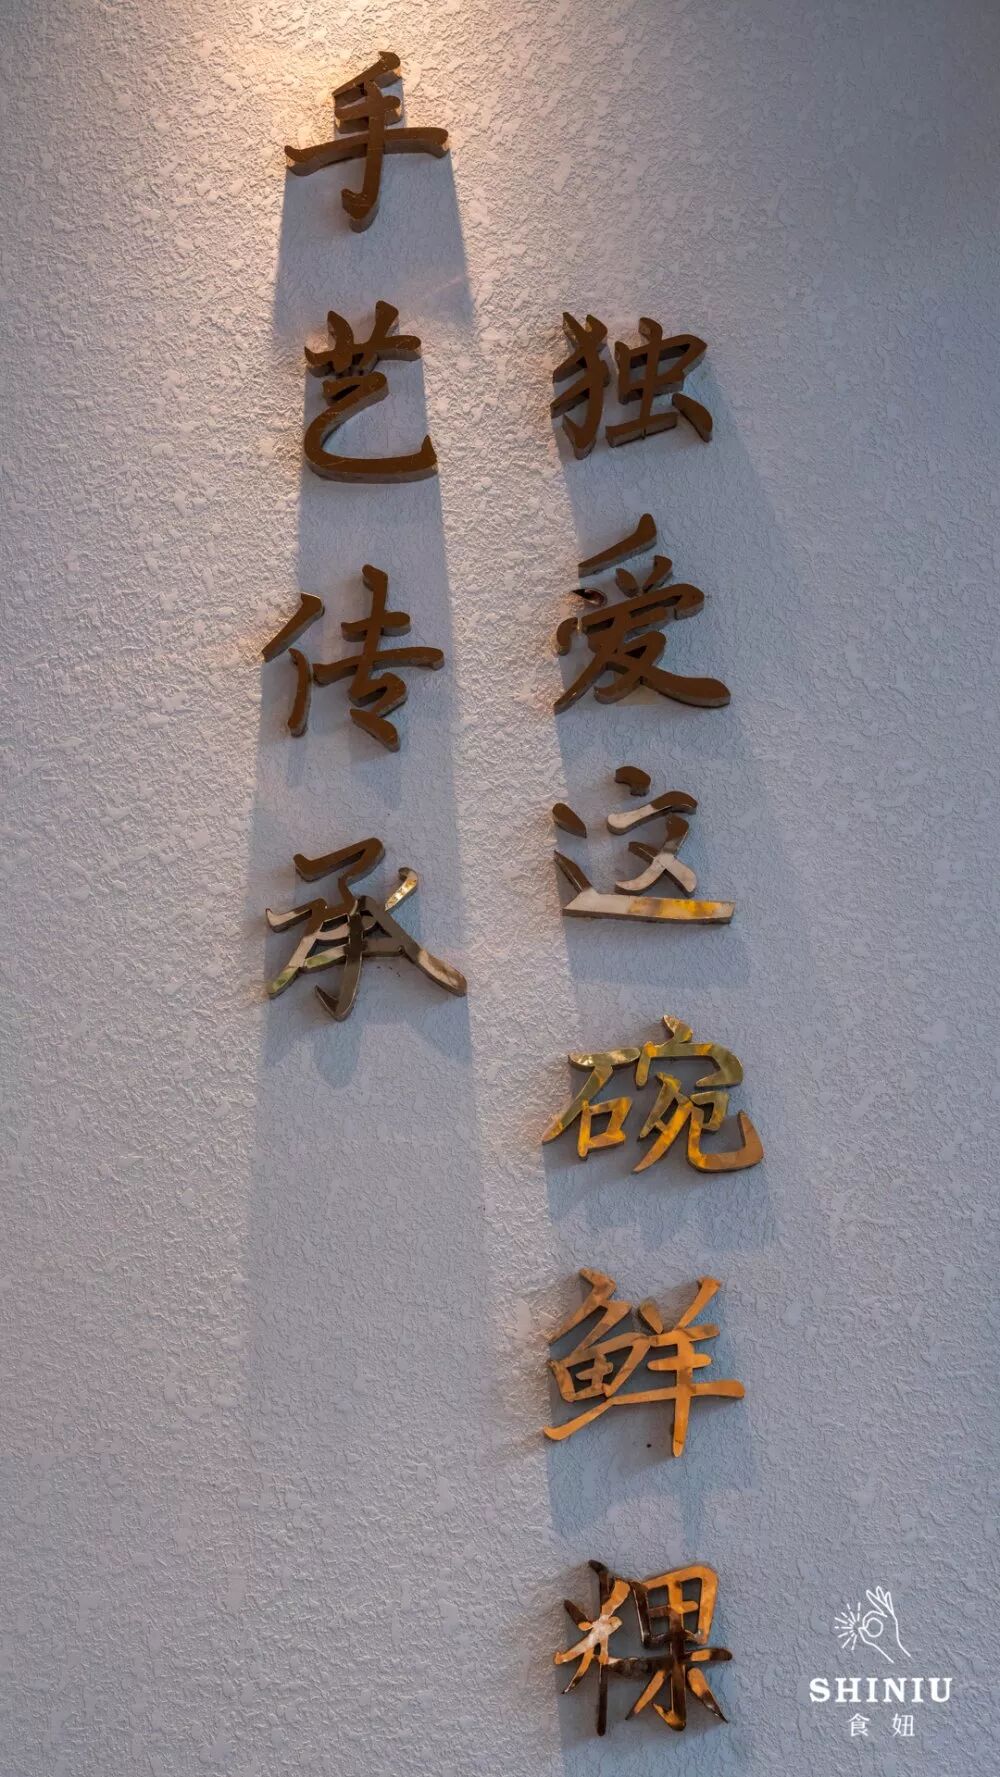 手艺传承
独爱这碗鲜粿
SHINIU
食妞